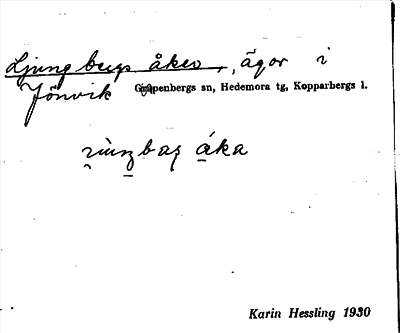 Ljungbergs åker, ägor i
Jönvik Garpenbergs sn, Hedemora tg, Kopparbergs l.
åka
Karin Hessling 1930